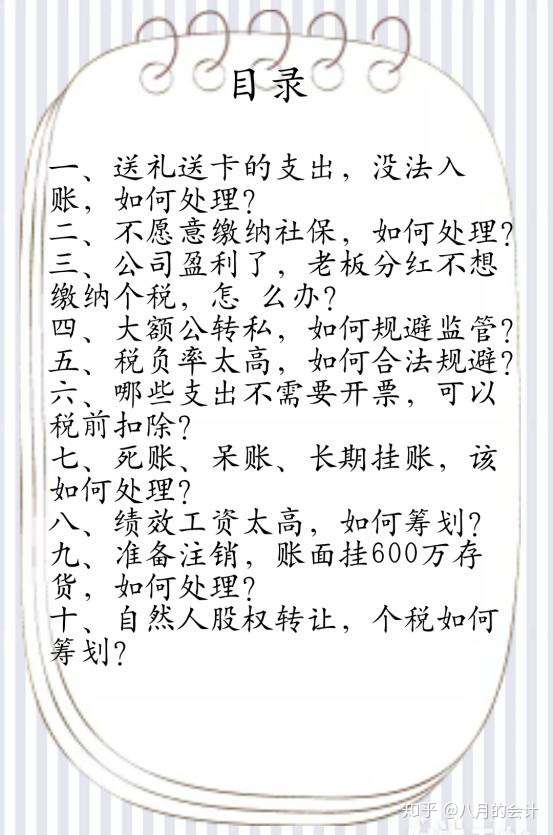 目录
一、送礼送卡的支出，没法入
账，如何处理？
二、不愿意缴纳社保，如何处理？
三、公司盈利了，老板分红不想
缴纳个税，怎 么办？
四、大额公转私，如何规避监管？
五、税负率太高，如何合法规避？
六、哪些支出不需要开票，可以
税前扣除？
七、死账、呆账、长期挂账，该
如何处理？
八、绩效工资太高，如何筹划？
九、准备注销，账面挂600万存
货，如何处理？
十、自然人股权转让，个税如何
筹划？
知乎 @八月的会计